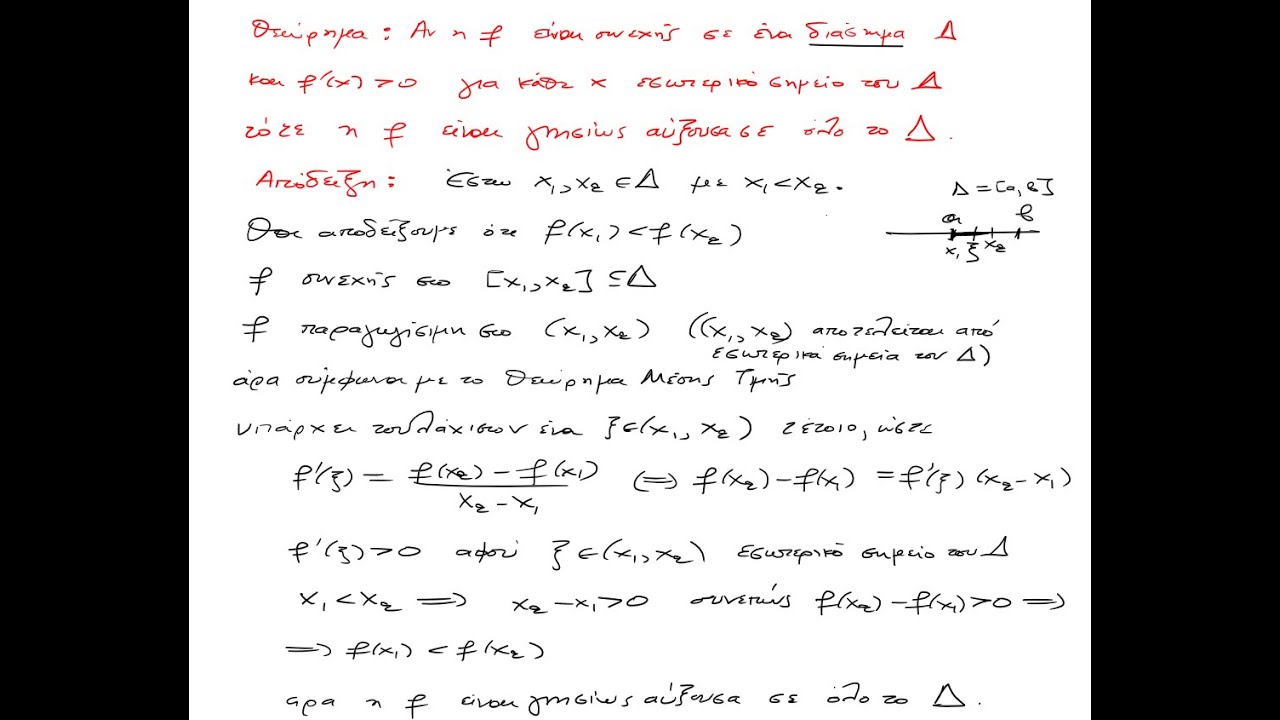 Θεώρημα: Αν η f είναι συνεχής σε ένα διάστημα Δ
και f'(x) > 0 για κάθε x εσωτερικό σημείο του Δ
τότε η f είναι γνησίως αύξουσα σε όλο το Δ.
Απόδειξη: Έστω x₁, x₂ ∈ Δ με x₁ < x₂.
Δ = [α, β]
α β
x₁ ξ x₂
Θα αποδείξουμε ότι f(x₁) < f(x₂)
f συνεχής στο [x₁, x₂] ⊆ Δ
f παραγωγίσιμη στο (x₁, x₂) ((x₁, x₂) αποτελείται από
εσωτερικά σημεία του Δ)
άρα σύμφωνα με το Θεώρημα Μέσης Τιμής
υπάρχει τουλάχιστον ένα ξ ∈ (x₁, x₂) τέτοιο, ώστε
f'(ξ) = (f(x₂) − f(x₁)) / (x₂ − x₁) ⟺ f(x₂) − f(x₁) = f'(ξ) (x₂ − x₁)
f'(ξ) > 0 αφού ξ ∈ (x₁, x₂) εσωτερικό σημείο του Δ
x₁ < x₂ ⟹ x₂ − x₁ > 0 συνεπώς f(x₂) − f(x₁) > 0 ⟹
⟹ f(x₁) < f(x₂)
άρα η f είναι γνησίως αύξουσα σε όλο το Δ.